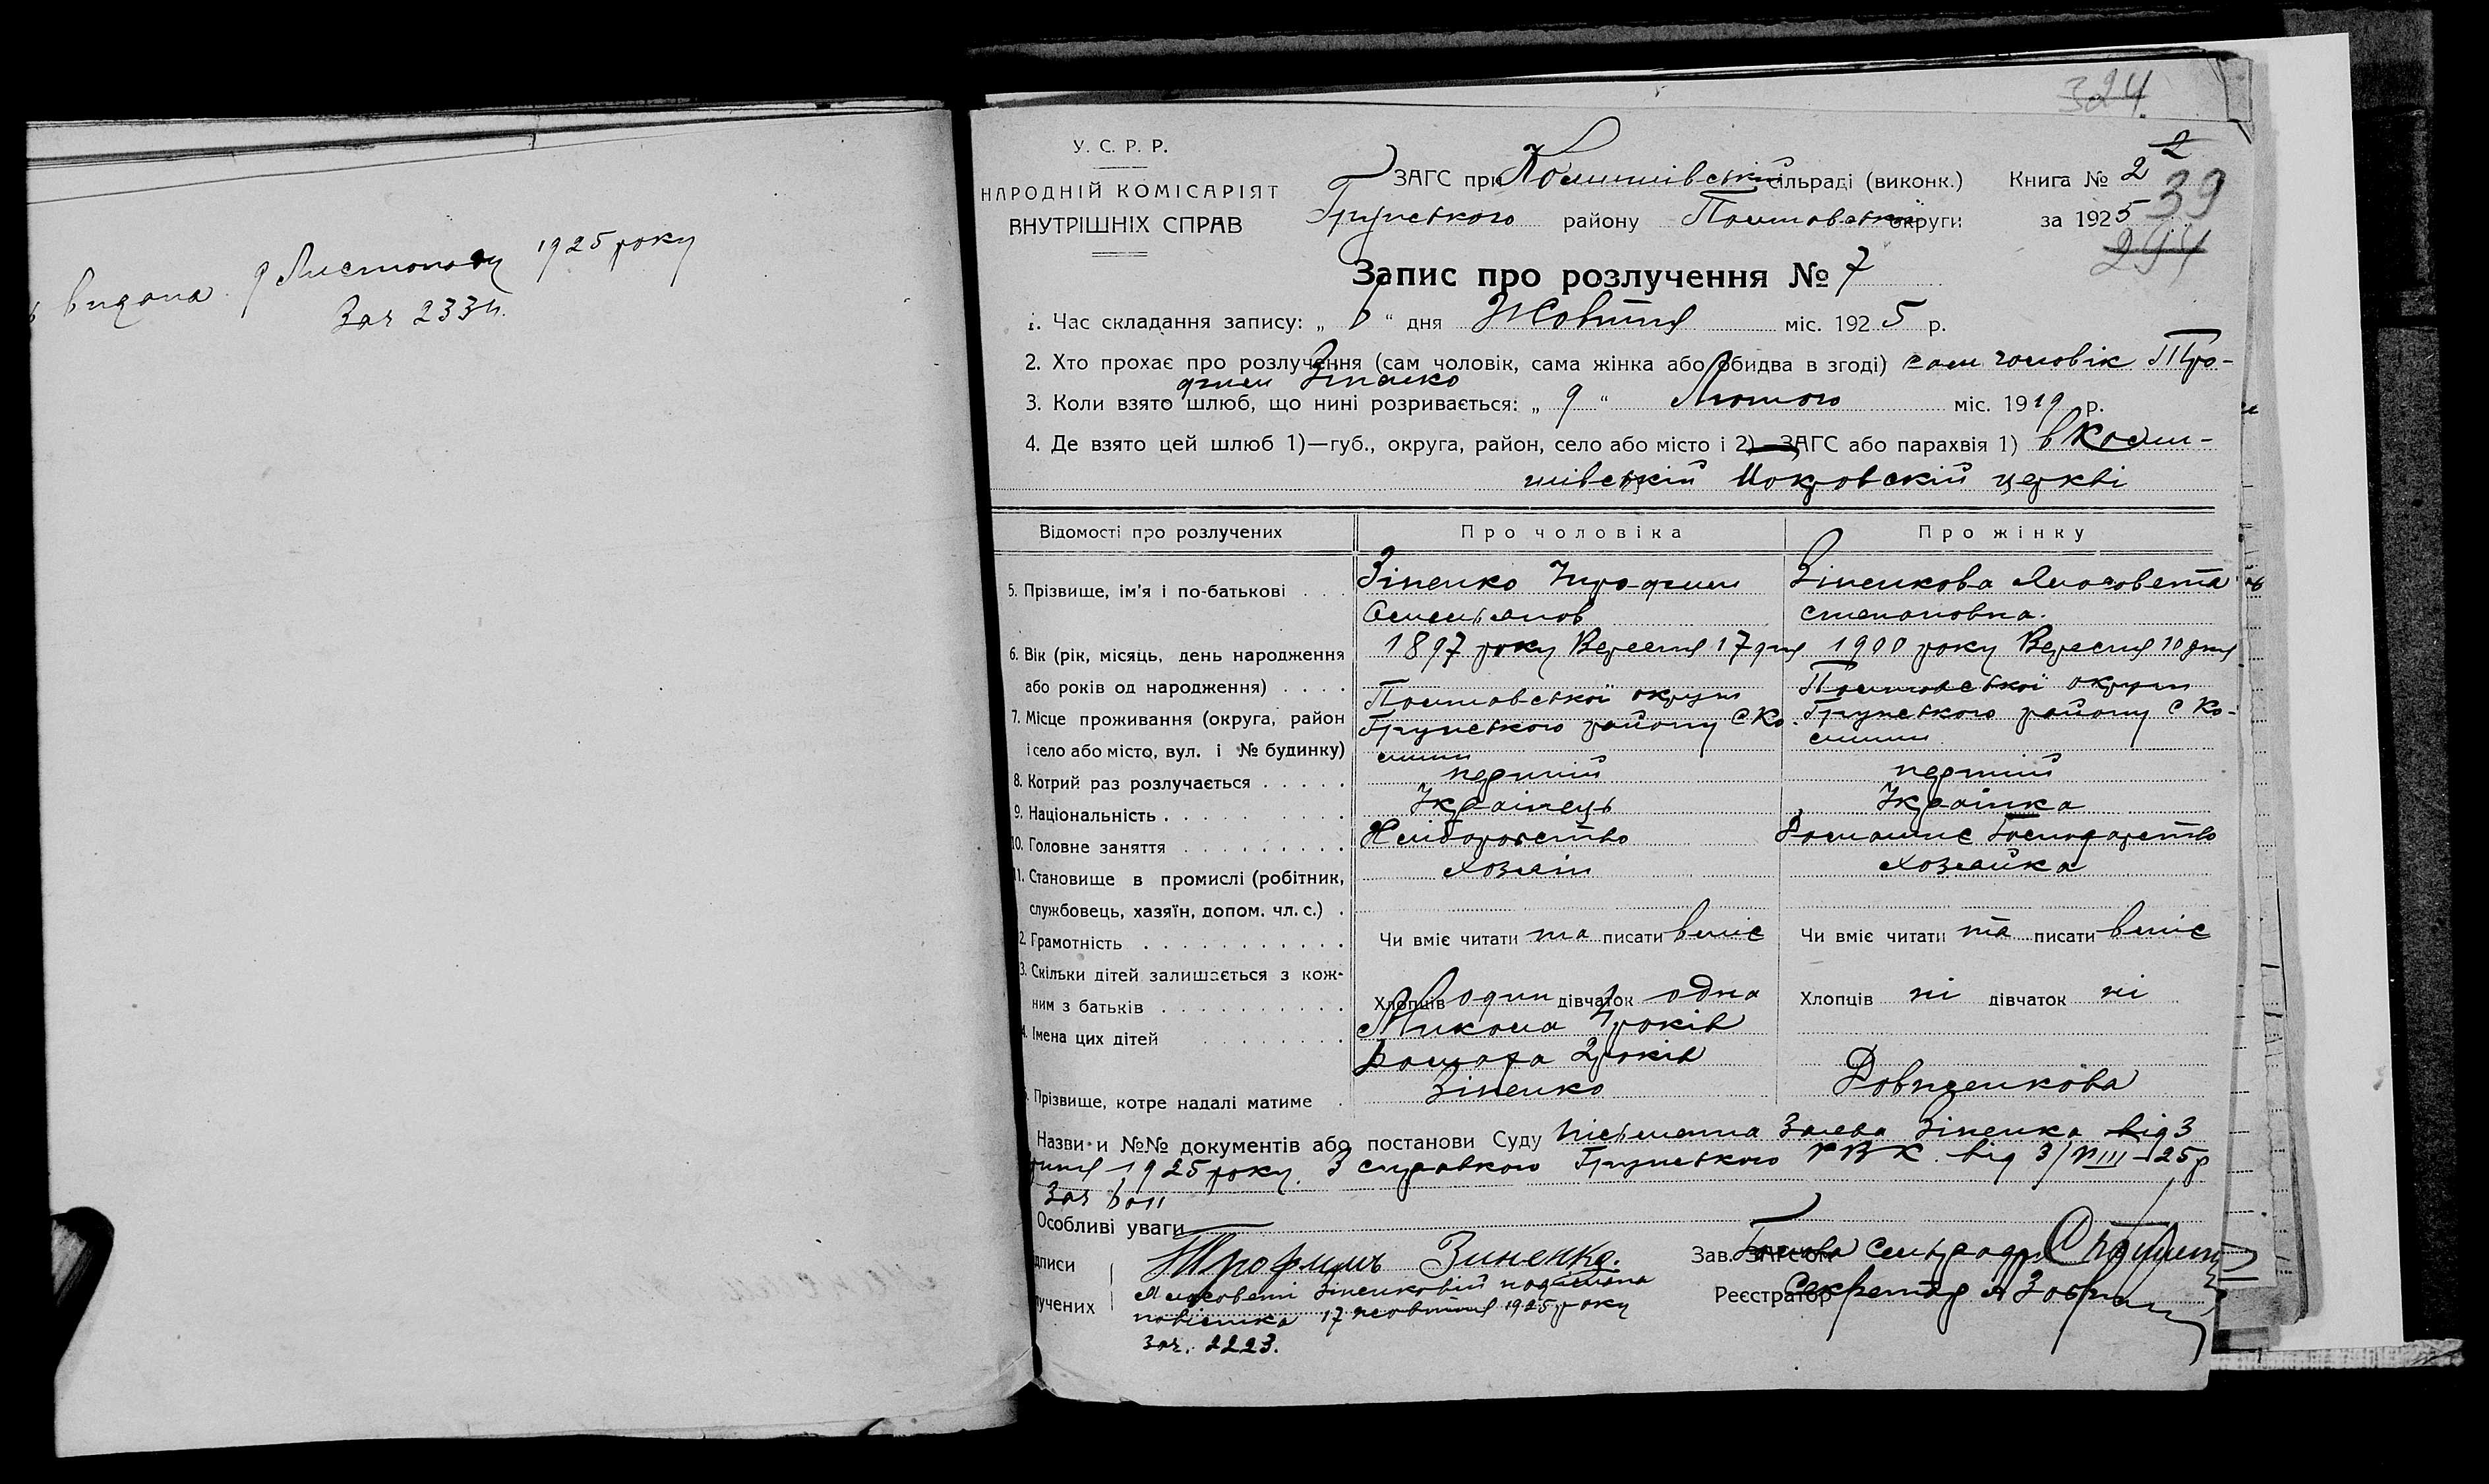 видана 9 Листопада 1925 року
Зач 2334.
324.
У. С. Р. Р.
НАРОДНІЙ КОМІСАРІЯТ
ВНУТРІШНІХ СПРАВ
ЗАГС при сільраді (виконк.) Книга № 2
2
39
Грунського району Полтавської округи за 1925
294
Запис про розлучення № 7
1. Час складання запису: „ 6 “ дня Жовтня міс. 1925 р.
2. Хто прохає про розлучення (сам чоловік, сама жінка або обидва в згоді) сам чоловік Тро-
фим Зіненко
3. Коли взято шлюб, що нині розривається: „ 9 “ Лютого міс. 1919 р.
4. Де взято цей шлюб 1)—губ., округа, район, село або місто і 2)—ЗАГС або парахвія 1) в
Покровскій церкві
Відомості про розлучених
Про чоловіка
Про жінку
5. Прізвище, ім'я і по-батькові
Зіненко Трофим
Омельянов
Зіненкова Лисовета
степановна.
6. Вік (рік, місяць, день народження
або років од народження)
1897 року Вересня 17 дня
1900 року Вересня 10 дня
7. Місце проживання (округа, район
і село або місто, вул. і № будинку)
Полтавської округи
Грунського району С Ко-
Полтавської округи
Грунського району С Ко-
8. Котрий раз розлучається
перший
перший
9. Національність
Українець
Українка
10. Головне заняття
Хліборобство
Домашнє Господарство
11. Становище в промислі (робітник,
службовець, хазяїн, допом. чл. с.)
хозяїн
хозяйка
2. Грамотність
Чи вміє читати та писати вміє
Чи вміє читати та писати вміє
3. Скільки дітей залишається з кож-
ним з батьків
Хлопців один дівчаток одна
Хлопців ні дівчаток ні
4. Імена цих дітей
Микола років
2 років
Прізвище, котре надалі матиме
Зіненко
Довиденкова
Назви и №№ документів або постанови Суду Письменна Заева Зіненка від 3
1925 року. З справкою Грунського РВК від 3/VIII–25 р
Зач
Особливі уваги
Трофимъ Зиненко.
Лисовети Зіненковій надіслана
повістка 17 жовтня 1925 року
зач. 2223.
Зав. ЗАГСом Голова сельради
Реєстратор Секретар